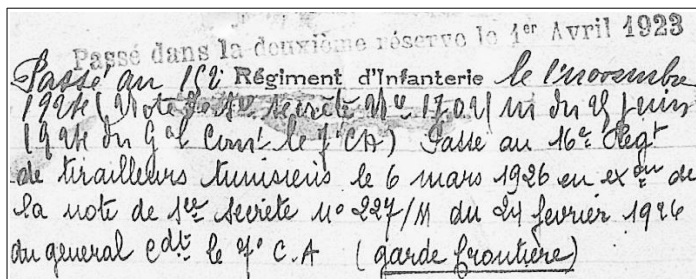 Passé dans la deuxième réserve le 1er Avril 1923
Passé au 152e Régiment d'Infanterie le 1er novembre
1924 (Note de Sce secrète No 1702/M du 25 juin
1924 du Gal Comt le 7e CA) Passé au 16e Regt
de tirailleurs tunisiens le 6 mars 1926 en exon de
la note de sce secrète no 227/M du 24 fevrier 1926
du general Cdt le 7e C.A (garde frontière)